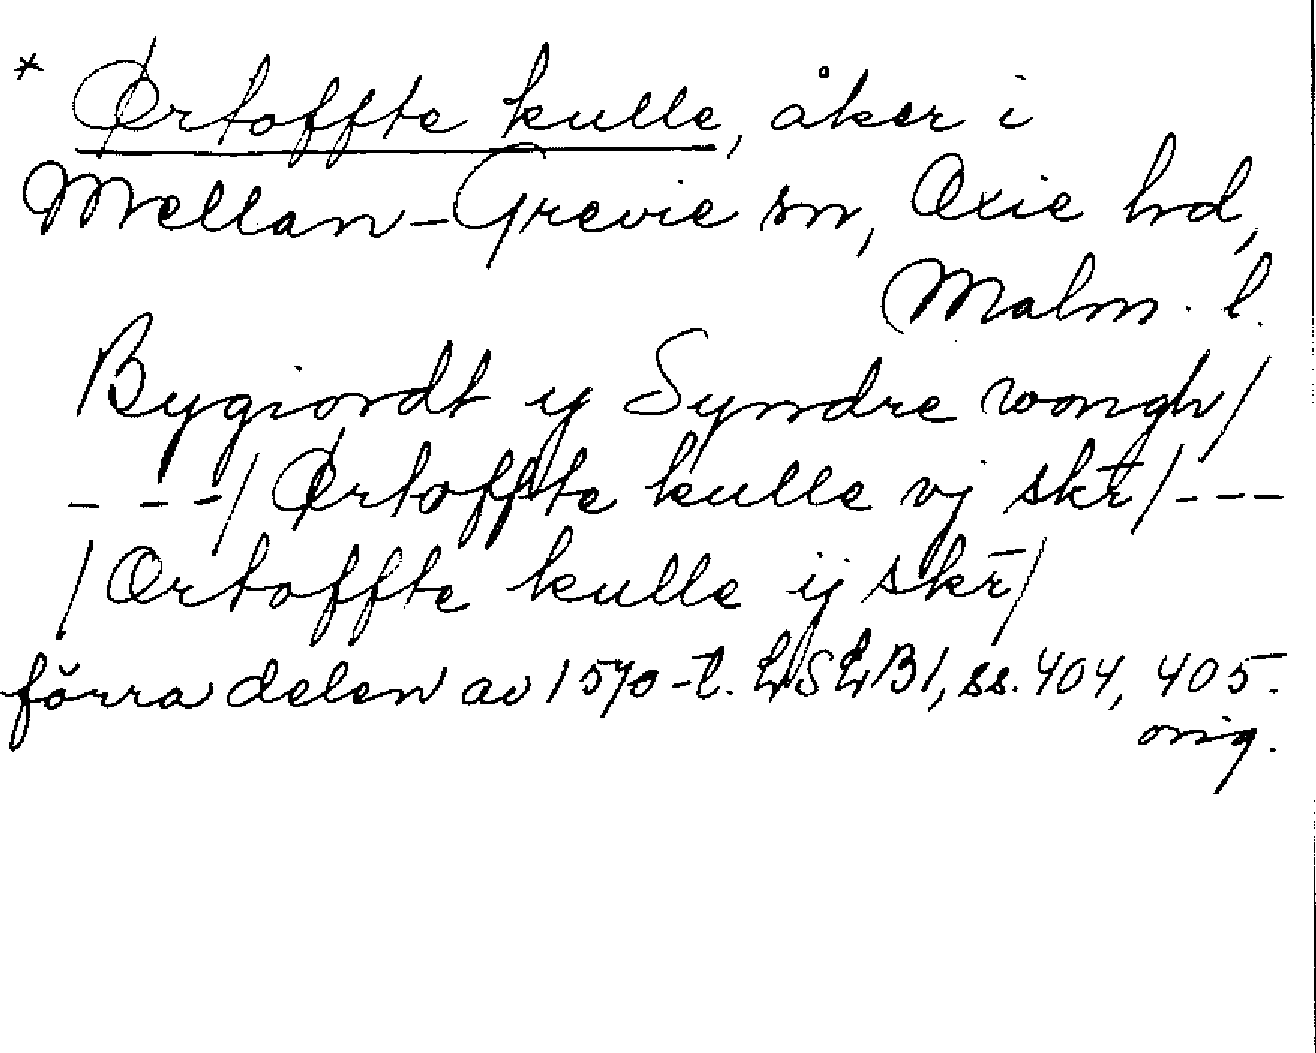 * Ørtoffte kulle, åker i
Mellan-Grevie sn, Oxie hd,
Malm. l.
Bygiordt ij Syndre wongh/
---/Ørtoffte kulle vj skr̄/---
/Ortoffte kulle ij skr̄/
förra delen av 1570-t. LSLB1, ss. 404, 405.
orig.